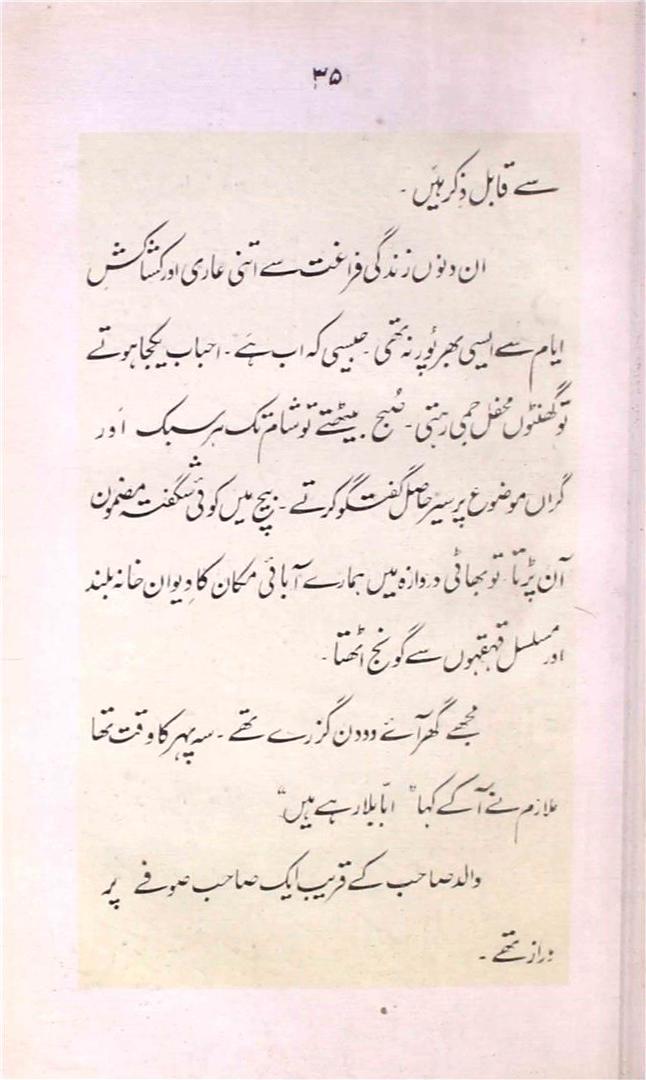 ۳۵
سے قابل ذکر ہیں ۔
ان دنوں زندگی فراغت سے اتنی عاری اور کشاکش
ایام سے ایسی بھرپُور نہ تھی ۔ جیسی کہ اب ہے ۔ احباب یکجا ہوتے
تو گھنٹوں محفل جمی رہتی ۔ صُبح بیٹھتے تو شام تک ہر سبک اَور
گراں موضوع پر سیر حاصل گفتگو کرتے ۔ بیچ میں کوئی شگفتہ مضمون
آن پڑتا تو بھاٹی دروازہ میں ہمارے آبائی مکان کا دِیوان خانہ بلند
اور مسلسل قہقہوں سے گونج اُٹھتا ۔
مجھے گھر آئے دو دن گزرے تھے ۔ سہ پہر کا وقت تھا
ملازم نے آ کے کہا "ابّا بلا رہے ہیں"
والد صاحب کے قریب ایک صاحب صوفے پر
دراز تھے ۔